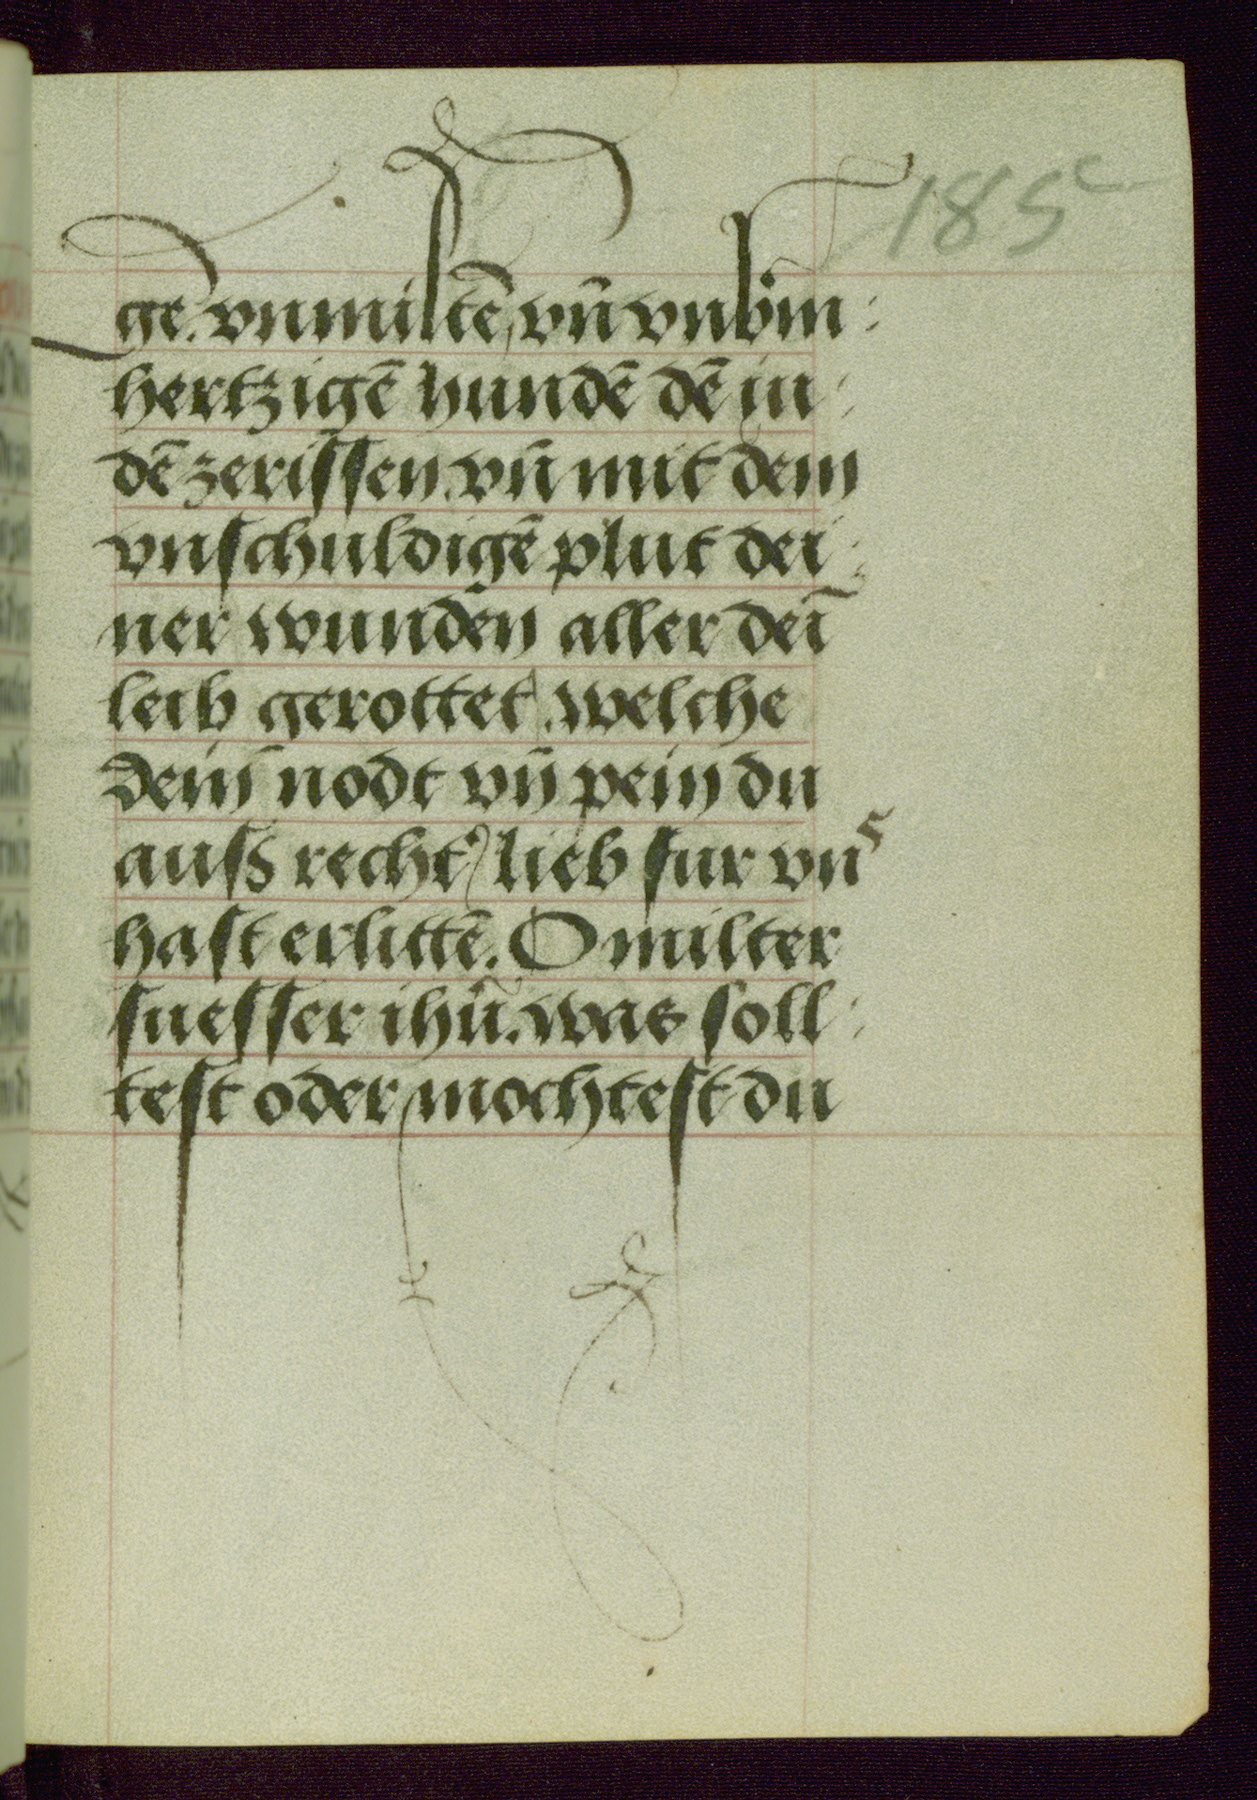 185
ge. vnmiltē, vn̄ vnbm̄:
hertzigē hundē dē in:
dē zerissen. vn̄ mit dem
vnschuldigē plut dei:
ner wunden aller deī
leib gerottet. welche
dein̄ nodt vn̄ pein du
auß recht lieb fur vns
hast erlittē. O milter
suesser ihū. was soll:
test oder mochtest du